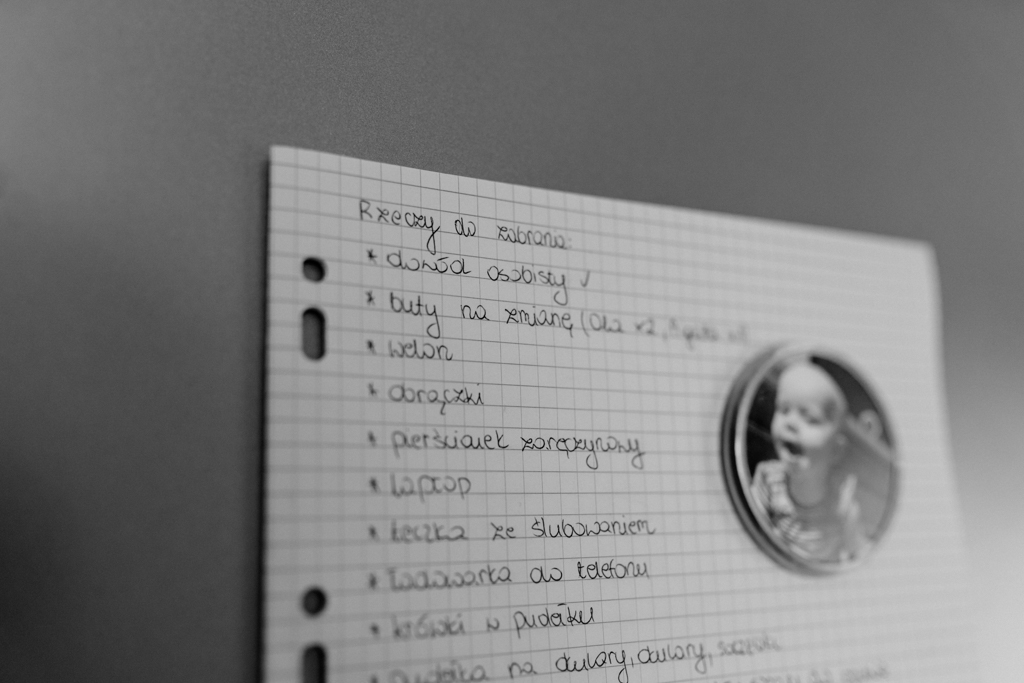 Rzeczy do zabrania:
* dowód osobisty ✓
* buty na zmianę (Ola x2,
* welon
* obrączki
* pierścionek zaręczynowy
* laptop
* teczka ze ślubowaniem
* ładowarka do telefonu
* krówki w pudełku
* pudełka na dulary, dulary,